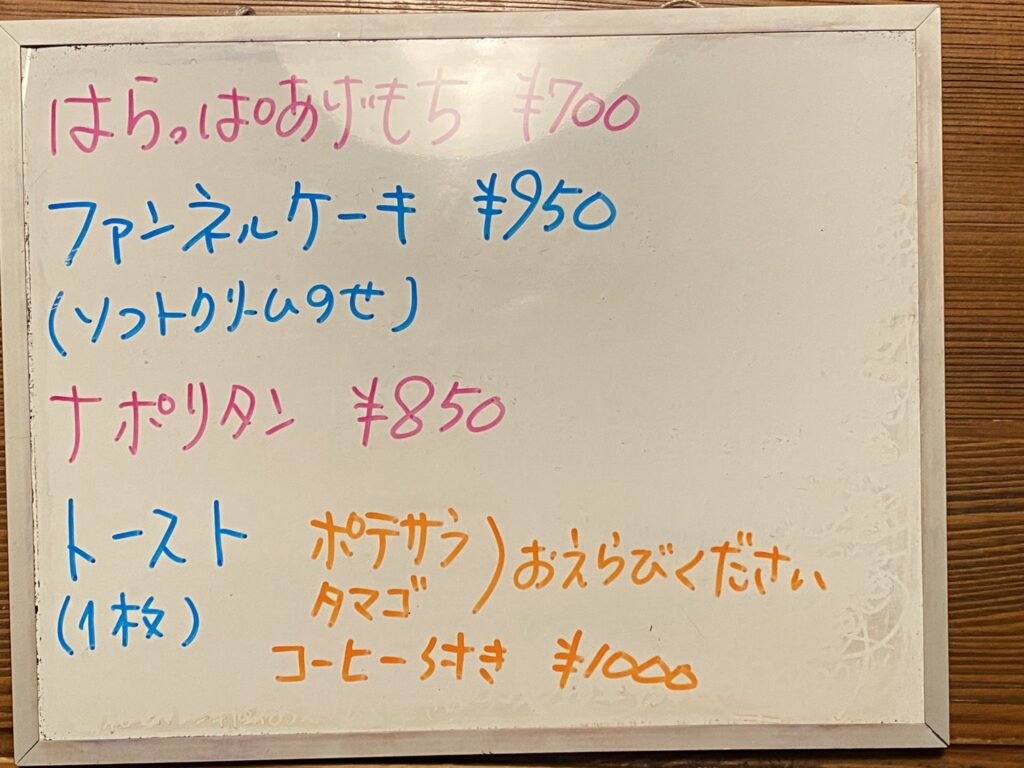 はらっぱあげもち ¥700
ファンネルケーキ ¥950
(ソフトクリームのせ)
ナポリタン ¥850
トースト
(1枚)
ポテサラ
タマゴ
)おえらびください
コーヒー付き ¥1000